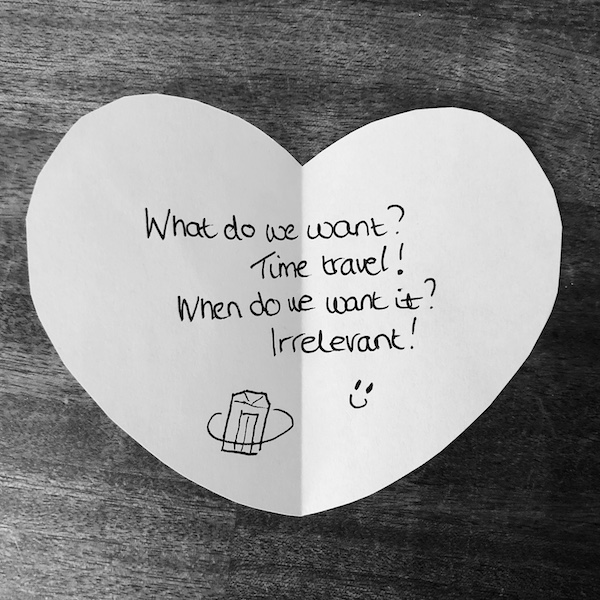 What do we want?
Time travel!
When do we want it?
Irrelevant!